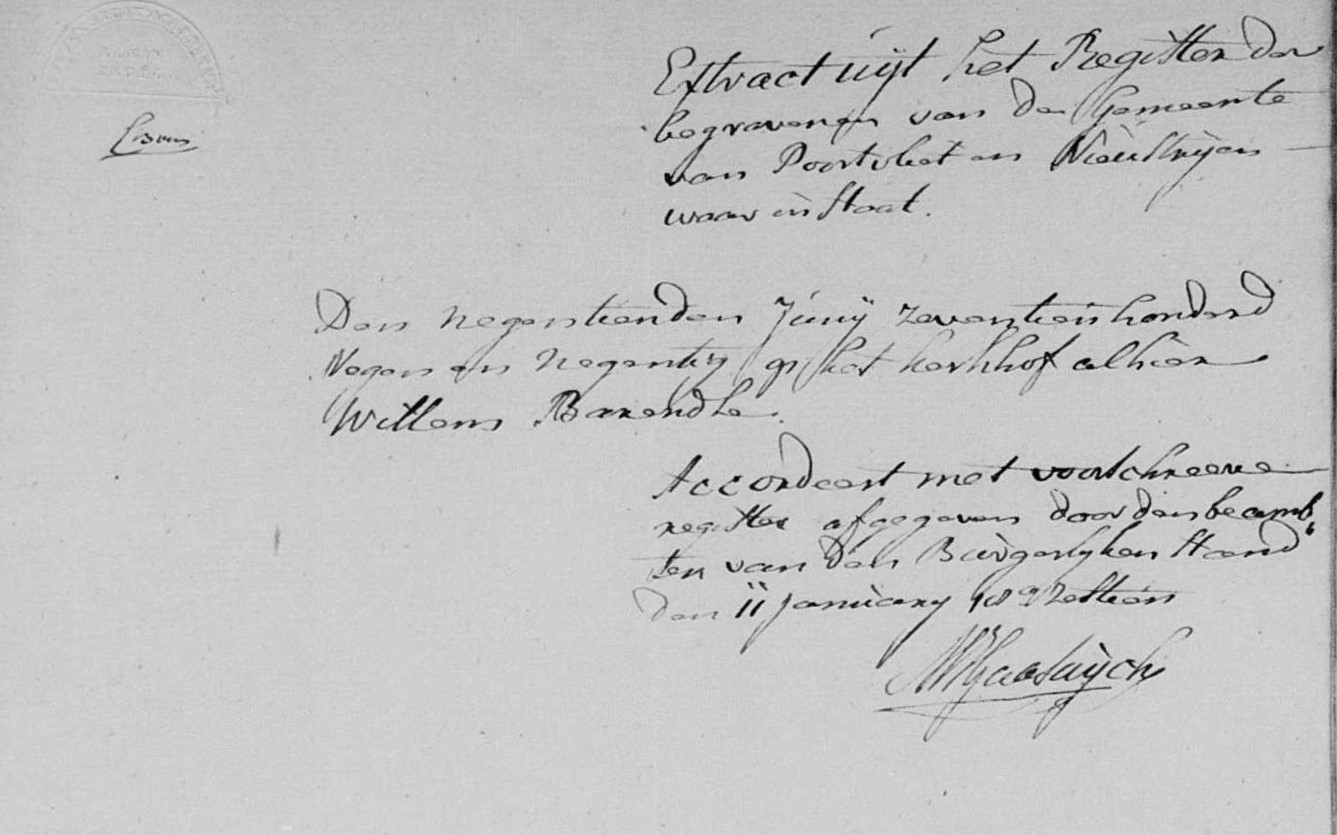 Extract uijt het Register der
begravenen van de Gemeente
van Poortvliet en Nieuw Strijen
waar in staat.
Den Negentienden Junij zeventienhonderd
Negen en Negentig op het kerkhof alhier
Willem Barendse.
Accordeert met voorschreeve
register afgegeven door den beamb,
ten van den Burgerlyken Stand
den 11 january 18 Zestien